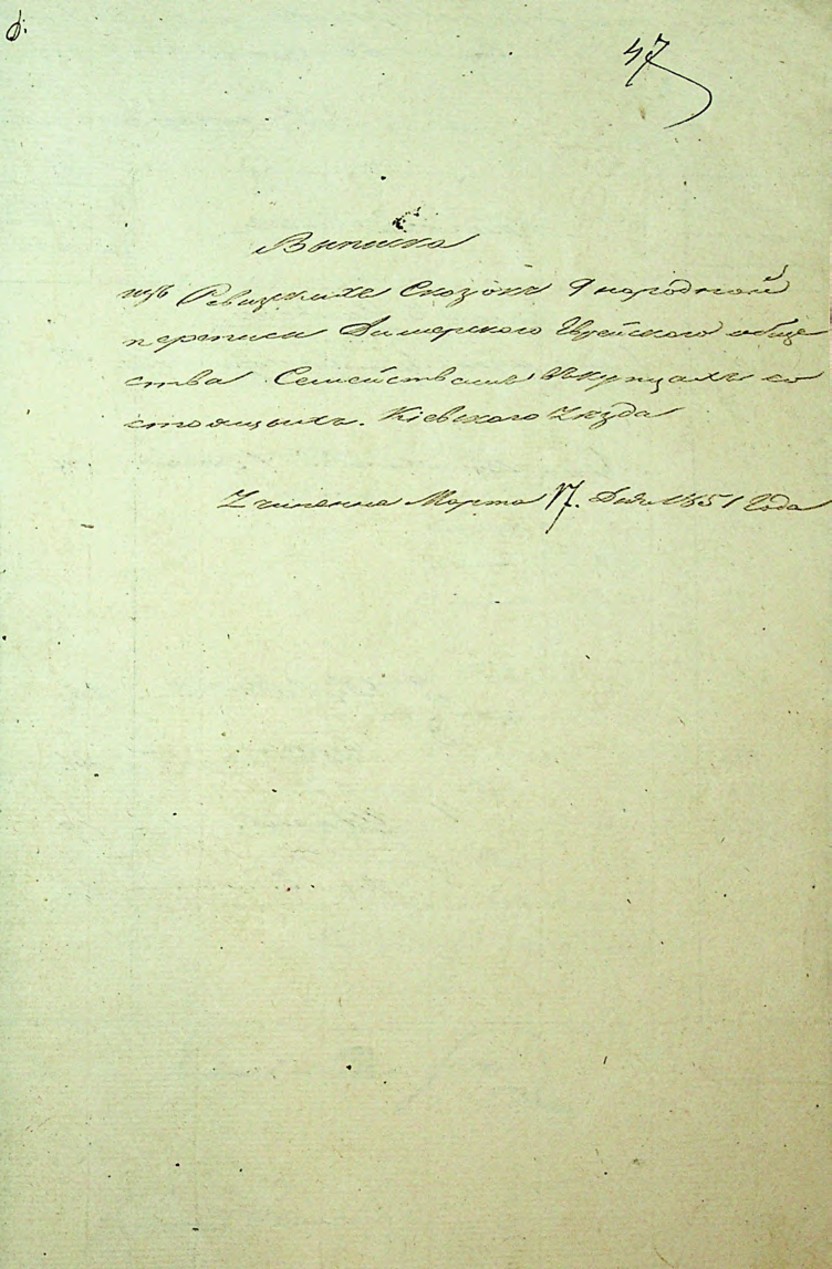 47
Выписка
изъ Ревизскихъ Сказокъ 9 народной
переписи Димерского Еврейского обще
ства Семействамъ въ купцахъ со
стоящихъ. Кіевского Уѣзда
Учинена Марта 17. Дня 1851 Года